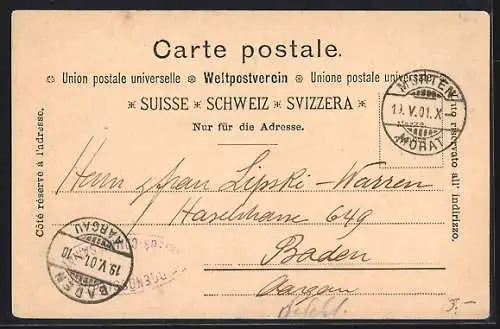 Carte postale.
Union postale universelle Weltpostverein Unione postale universale
SUISSE SCHWEIZ SVIZZERA
Nur für die Adresse.
Côté réservé à l'adresse.
Lato riservato all' indirizzo.
MURTEN
19.V.01.X
MORAT
Herrn Lipski-Warren
649
Baden
Aargau
BADEN
19.V.01.-10
AARGAU
3.-